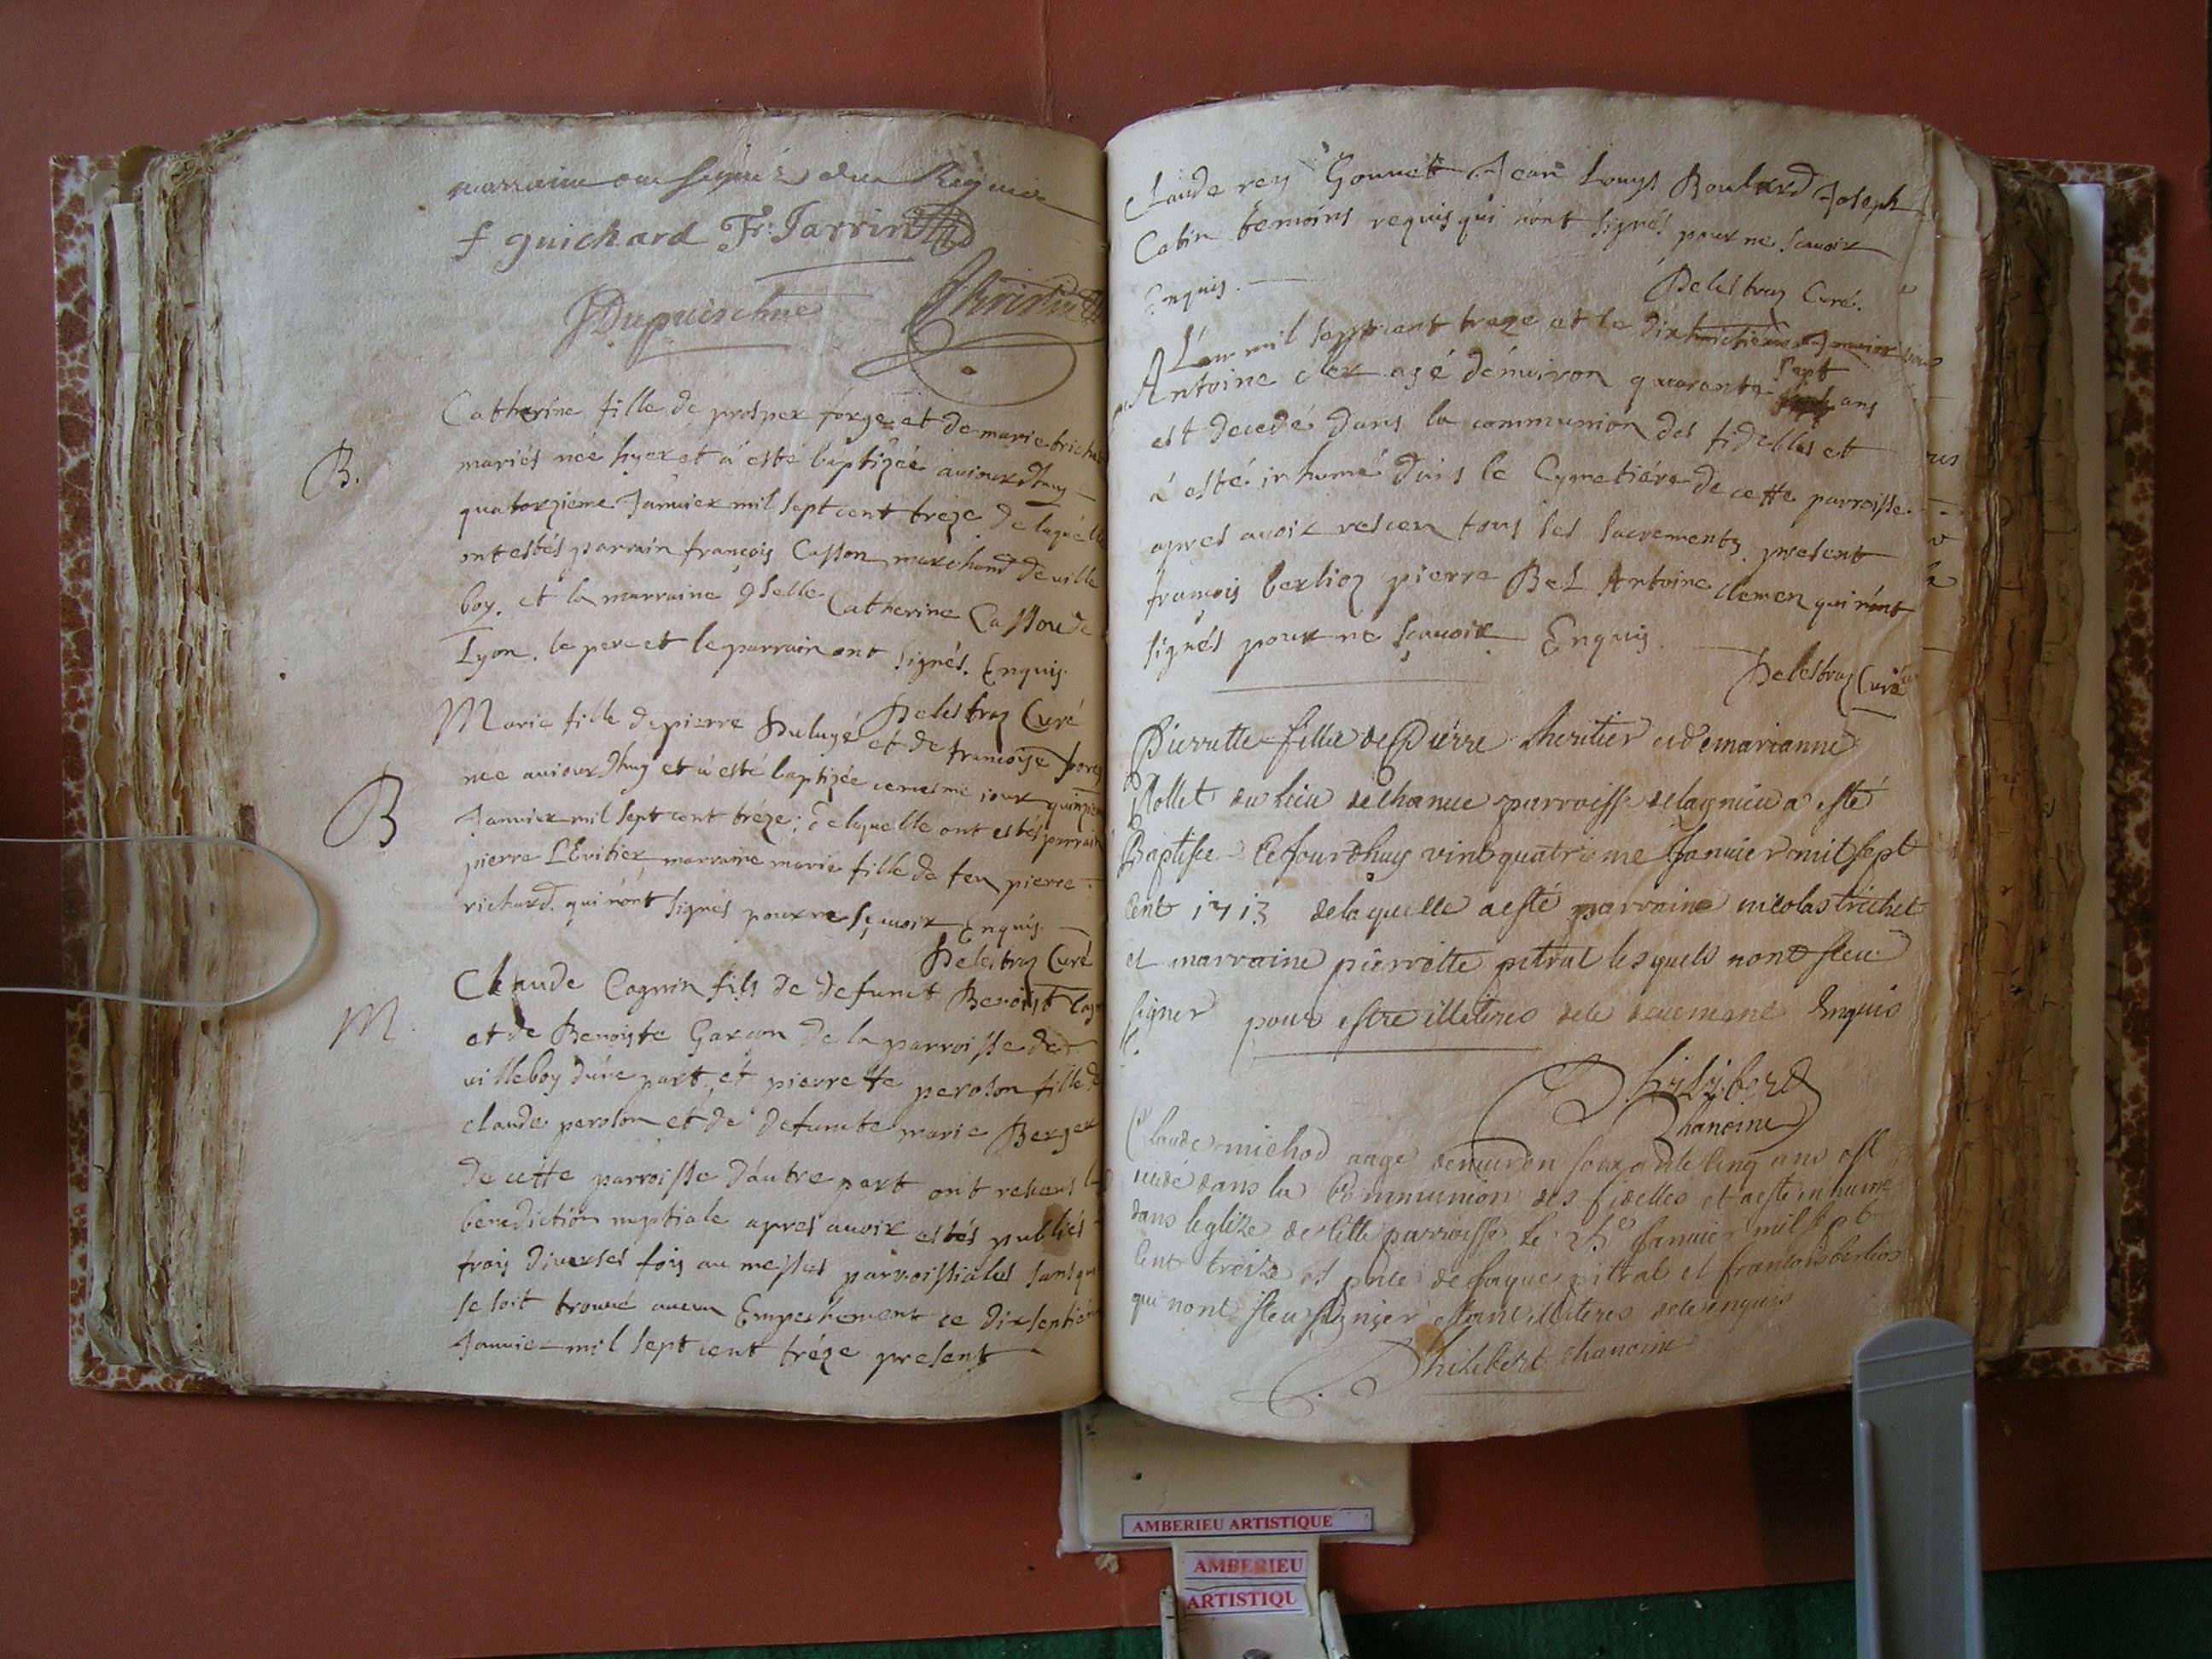 marraine ont signés
f guichard Fr: Jarrin
Catherine fille de prosper forge et de marie trichet
B.
mariés née hyer et à esté baptizée auiourdhuy
quatorziéme Januier mil sept cent tréze de laquélle
ont estés parrain françois Casson marchand de ville
boy. et la marraine dselle Catherine Casson de
Lyon. le pere et le parrain ont signés. Enquis.
Delestraz Curé
Marie fille de pierre et de francoise
B
née auiourdhuy et à esté baptizée ce mesme iour
Januier mil sept cent tréze; de laquelle ont estés parrain
pierre LEritier, marraine marie fille de feu pierre
richard. qui nónt signés pour ne sçauoir Enquis.
Delestraz Curé
Claude Cagnin fils de defunct Benoist
M.
et de Benoiste Garçon de la parroisse de
villeboy dúne part, et pierrette peroson fille de
claude peroson et de defuncte marie Berger
de cette parroisse dáutre part ont receus la
benediction nuptiale apres auoir estés publiés
trois diuerses fois au messes parroissiales sans que
se soit trouué aucun Empeschement ce dixseptiéme
Januier mil sept cent tréze present
Claude rey Gonnet Jean Louys Boulard Joseph
Cotin temoins requis qui nónt signés pour ne scauoir
Enquis.
Delestraz Curé.
Lán mil sept cent treze et le dixhuictiéme Januier
Antoine cler agé dénuiron quarante sept ans
est decedé dans la communion des fidelles et
à esté inhumé dans le Cymetiére de cette parroisse.
apres auoir receu tous ses sacrements. present
françois berlioz pierre Bel Antoine clemen qui nónt
signés pour ne sçauoir Enquis.
Delestraz Curé
Pierrette fille de Pierre lheritier et de marianne
Mollet du lieu de parroisse de lagnieu a esté
Baptisée Cejourdhuy vint quatrieme Januier mil sept
Cent 1713 de laquelle a esté parraine nicolas trichet
et marraine pierrette pitrat lesquels nont sceu
signer pour estre illitires de ce deuement Enquis
Philibert
Chanoine
Claude michod aagé denuiron soixante cinq ans est
dans la Communion des fidelles et a este inhumé
dans leglize de cette parroisse le Januier mil sept
Cent treize et de Jaque pitrat et francois berlioz
qui nont sceu signer estant illitires de ce enquis
Philibert chanoine
AMBERIEU ARTISTIQUE
AMBERIEU
ARTISTIQU